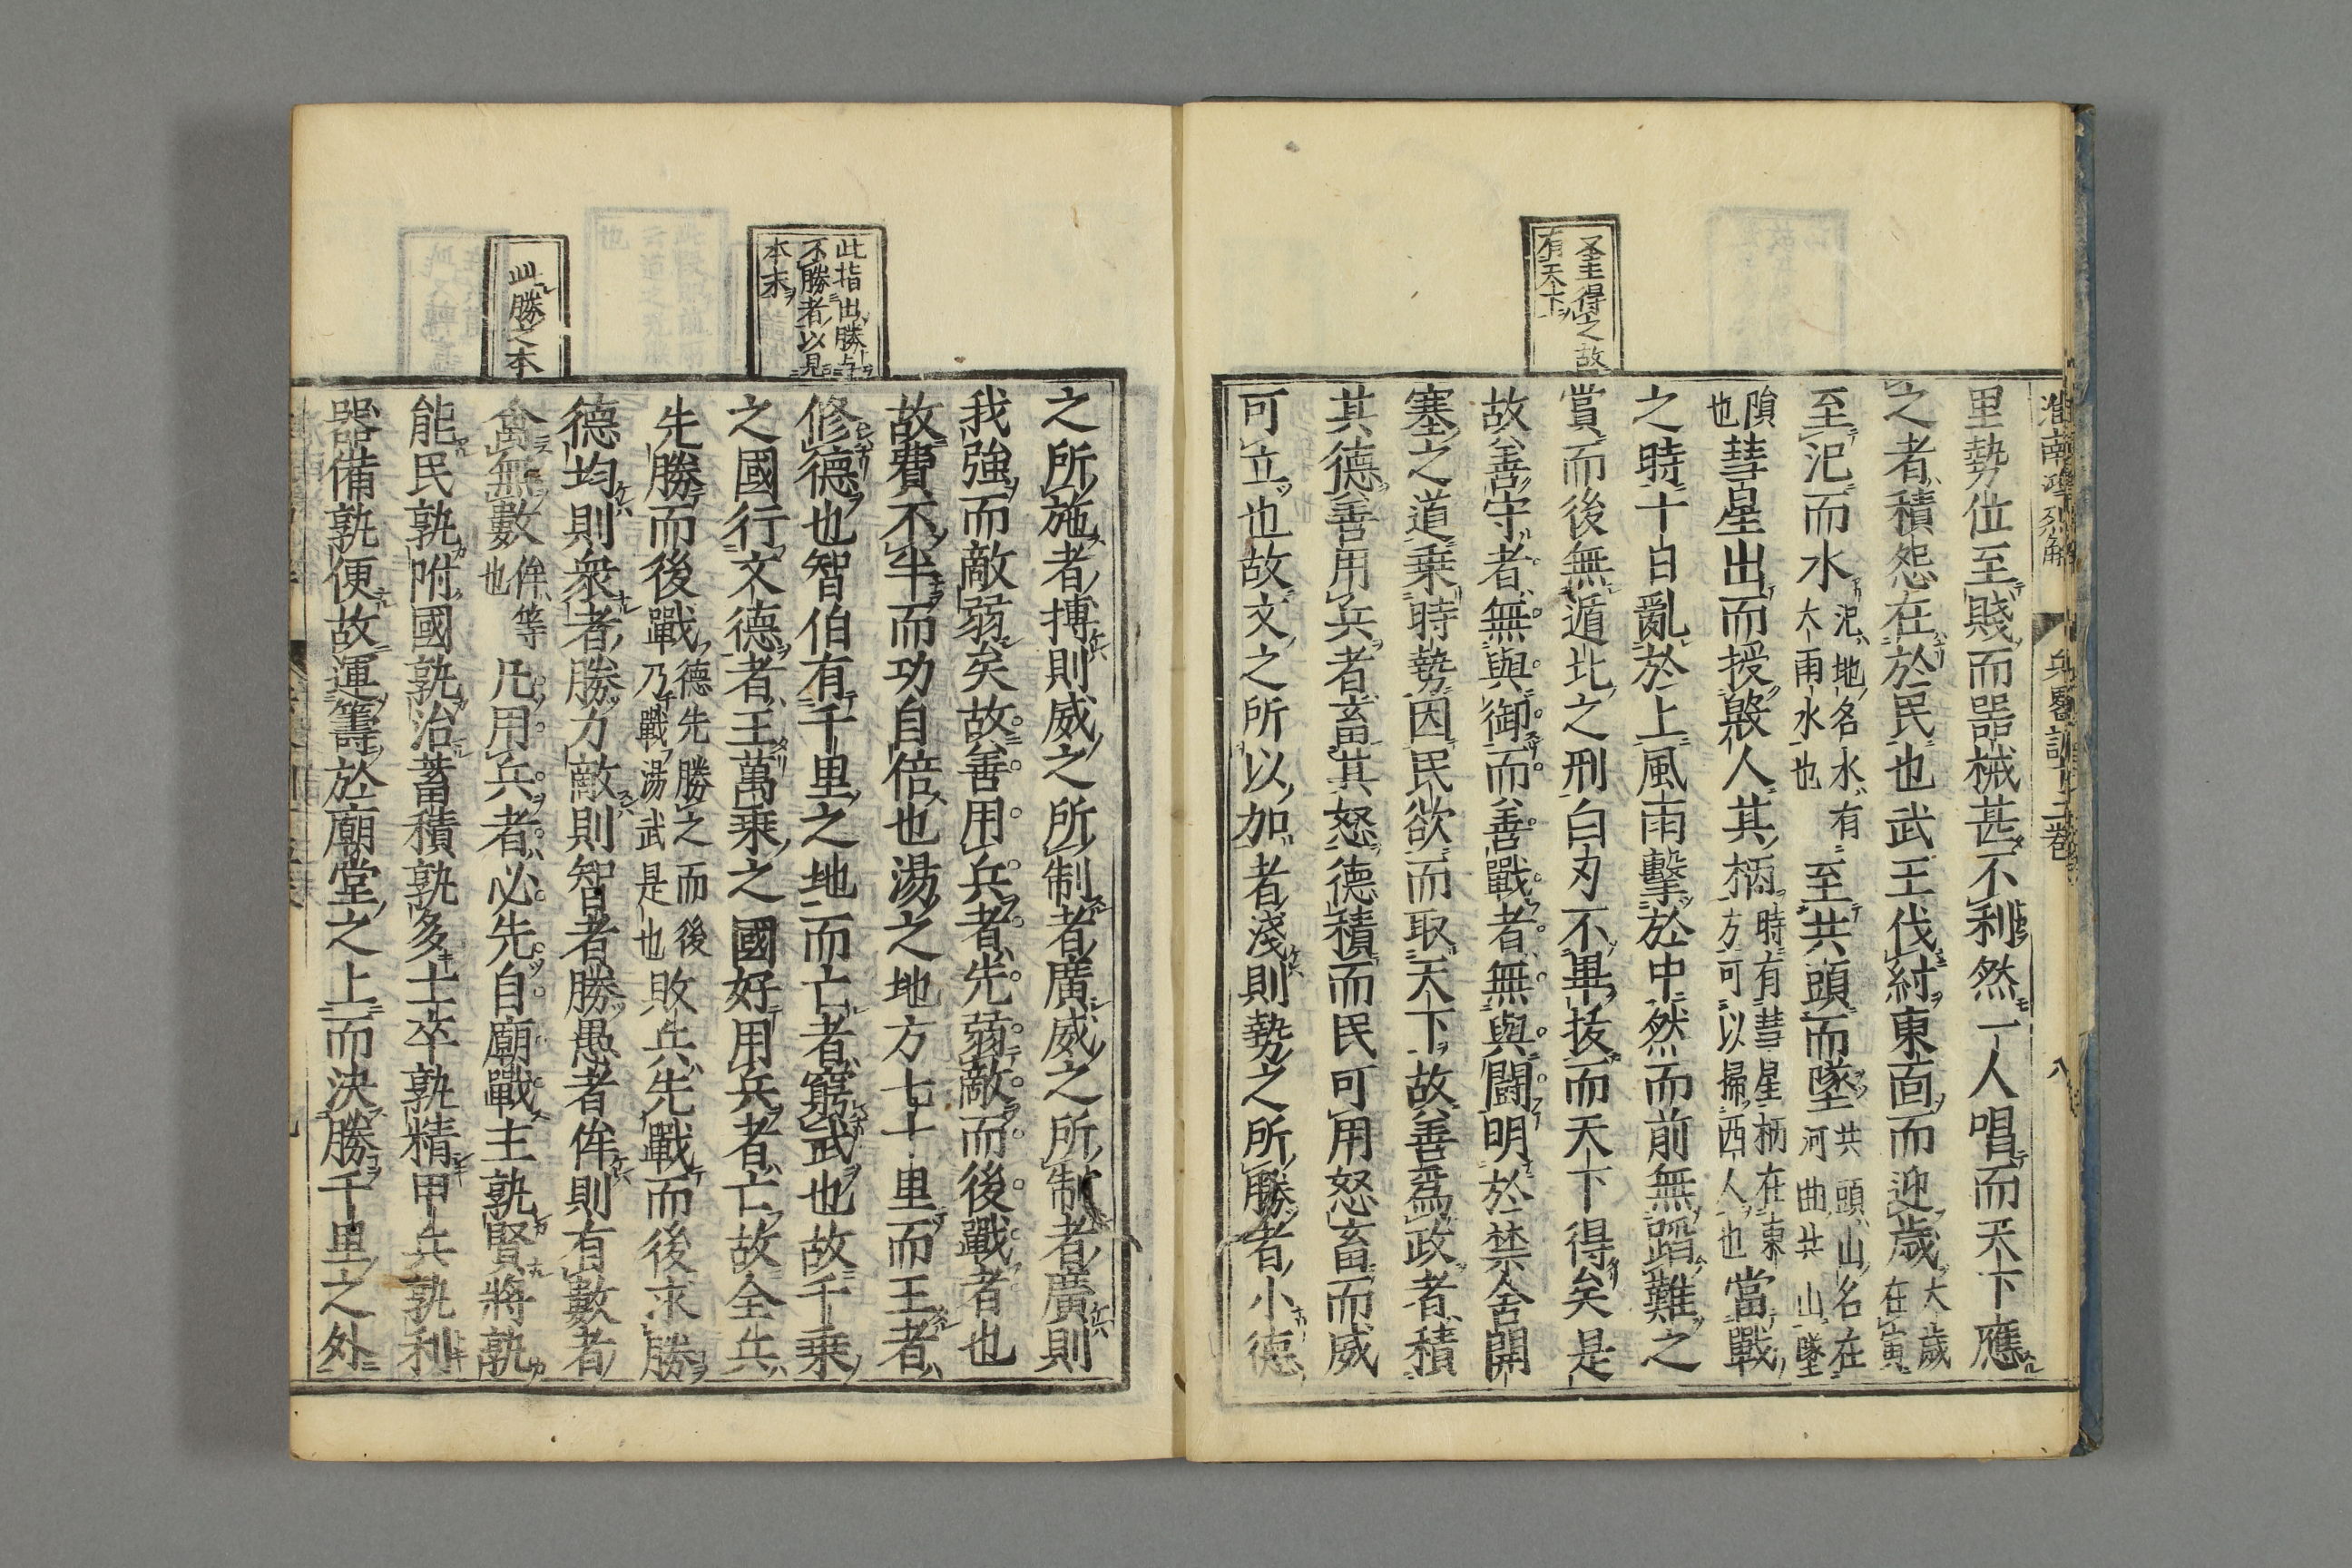 淮南鴻烈解
兵畧訓
二十卷
八
聖王得之故
有天下
里勢位至賤而器械甚不利然一人唱而天下應
之者積怨在於民也武王伐紂東面而迎歲大歲在寅
至汜而水汜地名水有大雨水也至共頭而墜共頭山名在河曲共山墜
隕也彗星出而授殷人其柄時有彗星柄在東方可以掃西人也當戰
之時十日亂於上風雨擊於中然而前無蹈難之
賞而後無遁北之刑白刃不畢拔而天下得矣是
故善守者無與御而善戰者無與鬬明於禁舍開
塞之道乗時勢因民欲而取天下故善爲政者積
其德善用兵者畜其怒德積而民可用怒畜而威
可立也故文之所以加者淺則勢之所勝者小德
此指出勝与
不勝者以見
本末
此勝之本
之所施者博則威之所制者廣威之所制者廣則
我強而敵弱矣故善用兵者先弱敵而後戰者也
故費不半而功自倍也湯之地方七十里而王者
修德也智伯有千里之地而亡者窮武也故千乗
之國行文德者王萬乗之國好用兵者亡故全兵
先勝而後戰德先勝之而後乃戰湯武是也敗兵先戰而後求勝
德均則衆者勝力敵則智者勝愚者侔則有數者
禽無數侔等也凡用兵者必先自廟戰主孰賢將孰
能民孰附國孰治蓄積孰多士卒孰精甲兵孰利
器備孰便故運籌於廟堂之上而決勝千里之外